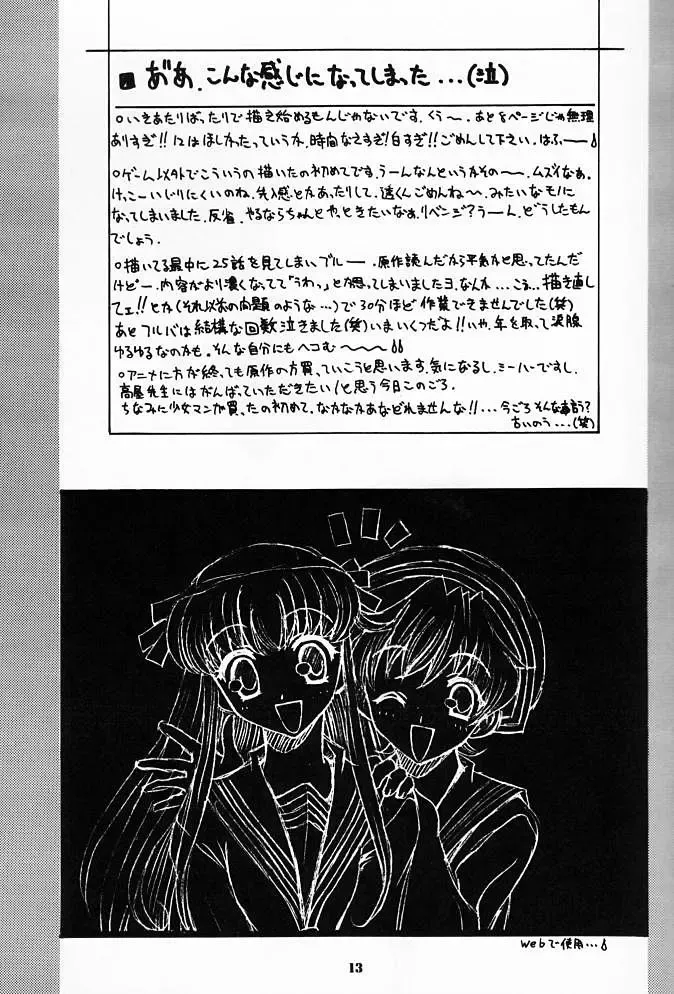 ■ あ"あ、こんな感じになってしまった...(泣)
○いきあたりばったりで描き始めるもんじゃないです。くぅ〜。あと8ページじゃ無理
ありすぎ!!12はほしかったっていうか、時間なさすぎ!白すぎ!!ごめんして下さい。はふぅ——
○ゲーム以外でこういうの描いたの初めてです。うーんなんというかその〜。ムズイなあ。
けっこーいじりにくいのね。先入感とかあったりして。透くんごめんね〜。みたいなモノに
なってしまいました。反省。やるならちゃんとやっときたいなぁ。リベンジ?うーん。どうしたもん
でしょう。
○描いてる最中に25話を見てしまい、ブルー——。原作読んだから平気かと思ってたんだ
けどー。内容がより濃くなってて「うわっ」とか思ってしまいましたヨ。なんか...こう...描き直し
てェ!!とか(それ以前の問題のような...)で30分ほど作業できませんでした(笑)
あとフルバは結構な回数泣きました(笑)いまいくつだよ!!いや、年を取って涙腺
ゆるゆるなのかも。そんな自分にもヘコむ〜〜〜
○アニメに方が終っても原作の方買っていこうと思います。気になるし。ミーハーですし。
高屋先生にはがんばっていただきたい!と思う今日このごろ。
ちなみに少女マンガ買ったの初めて。なかなかあなどれませんな!!...今ごろそんな事言う?
ちいのう...(笑)
webで使用...
13